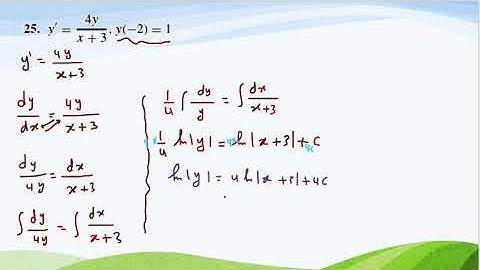 25. y' = 4y/(x + 3), y(-2) = 1
y' = 4y/(x+3)
dy/dx = 4y/(x+3)
dy/4y = dx/(x+3)
∫ dy/4y = ∫ dx/(x+3)
1/4 ∫ dy/y = ∫ dx/(x+3)
1/4 ln|y| = ln|x+3| + c
ln|y| = 4 ln|x+3| + 4c